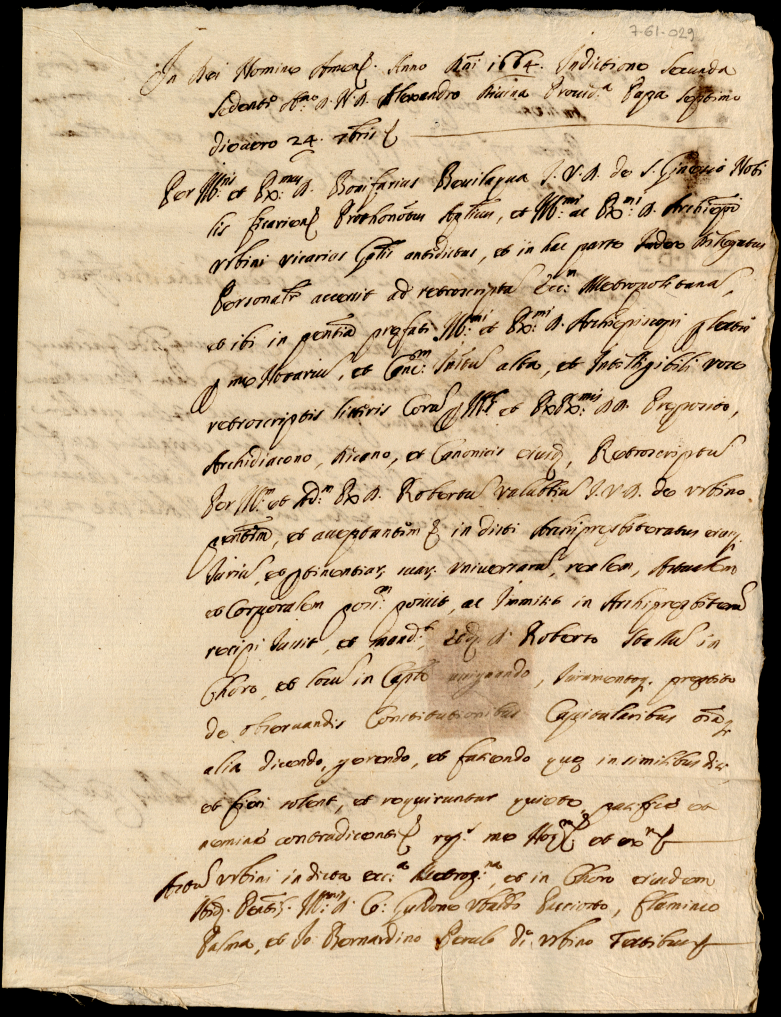 7-61-029
In Dei Nomine Amen. Anno Dni 1664. Indictione Secunda
Sedente D. N. D. Alexandro Divina Provid.a Papa Septimo
die vero 24. 7bris
Per Ill: et Ex:mus D. Bonifacius Bevilaqua J. V. D. de S. Ginesio Nobi
lis Prothonotus Aplicus, et Ill:mi ac Ex:mi D. Archiepi
Urbini vicarius Gnlis antedictus, et in hac parte Judex Delegatus
Personalr accessit ad retroscripta Ecc:m Metropolitana,
et ibi in pntia prefati Ill:mi et Ex:mi D. Archiepiscopi
p me Notariu, et Canc:m alta, et Intelligibili voce
retroscriptis litteris Cora Ill et ExEx:mis DD. Preposito,
Archidiacono, Dicano, et Canonicis eiusd, Retroscriptu
Per Ill:m et Ad:m Ex D. Robertu J. V. D. de Urbino
pntem, et acceptantem in dicti Archipresbiteratus
Juriu, et ptinentiar, suar, universaru, realem, Actualem
et Corporalem poss:m posuit, ac Immisit in Archipresbiteru
recipi Jussit, et mand.t D. Roberto Stallu in
Choro, et locu in Caplo assignando, Juramentoq. prestito
de observandis Constitutionibus Capitularibus oia
alia dicendo, gerendo, et faciendo que in similibus dici,
et fieri solent, et requiruntur quiete, pacifice et
nemine contradicente me Not et
Actu Urbini in dicta ecc:a Metrop:na, et in Choro eiusdem
Ibid. Pntis. D. Co: Guidone Ubaldo, Flaminio
Palma, et Jo: Bernardino de Urbino Testibus